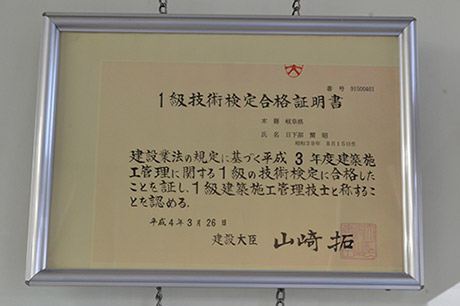 番号 91000461
1級技術検定合格証明書
本籍 岐阜県
氏名 日下部
昭和39年 8月15日生
建設業法の規定に基づく平成 3 年度建築施
工管理に関する1級の技術検定に合格した
ことを証し、1級建築施工管理技士と称するこ
とを認める。
平成4年3月26日
建設大臣 山崎 拓